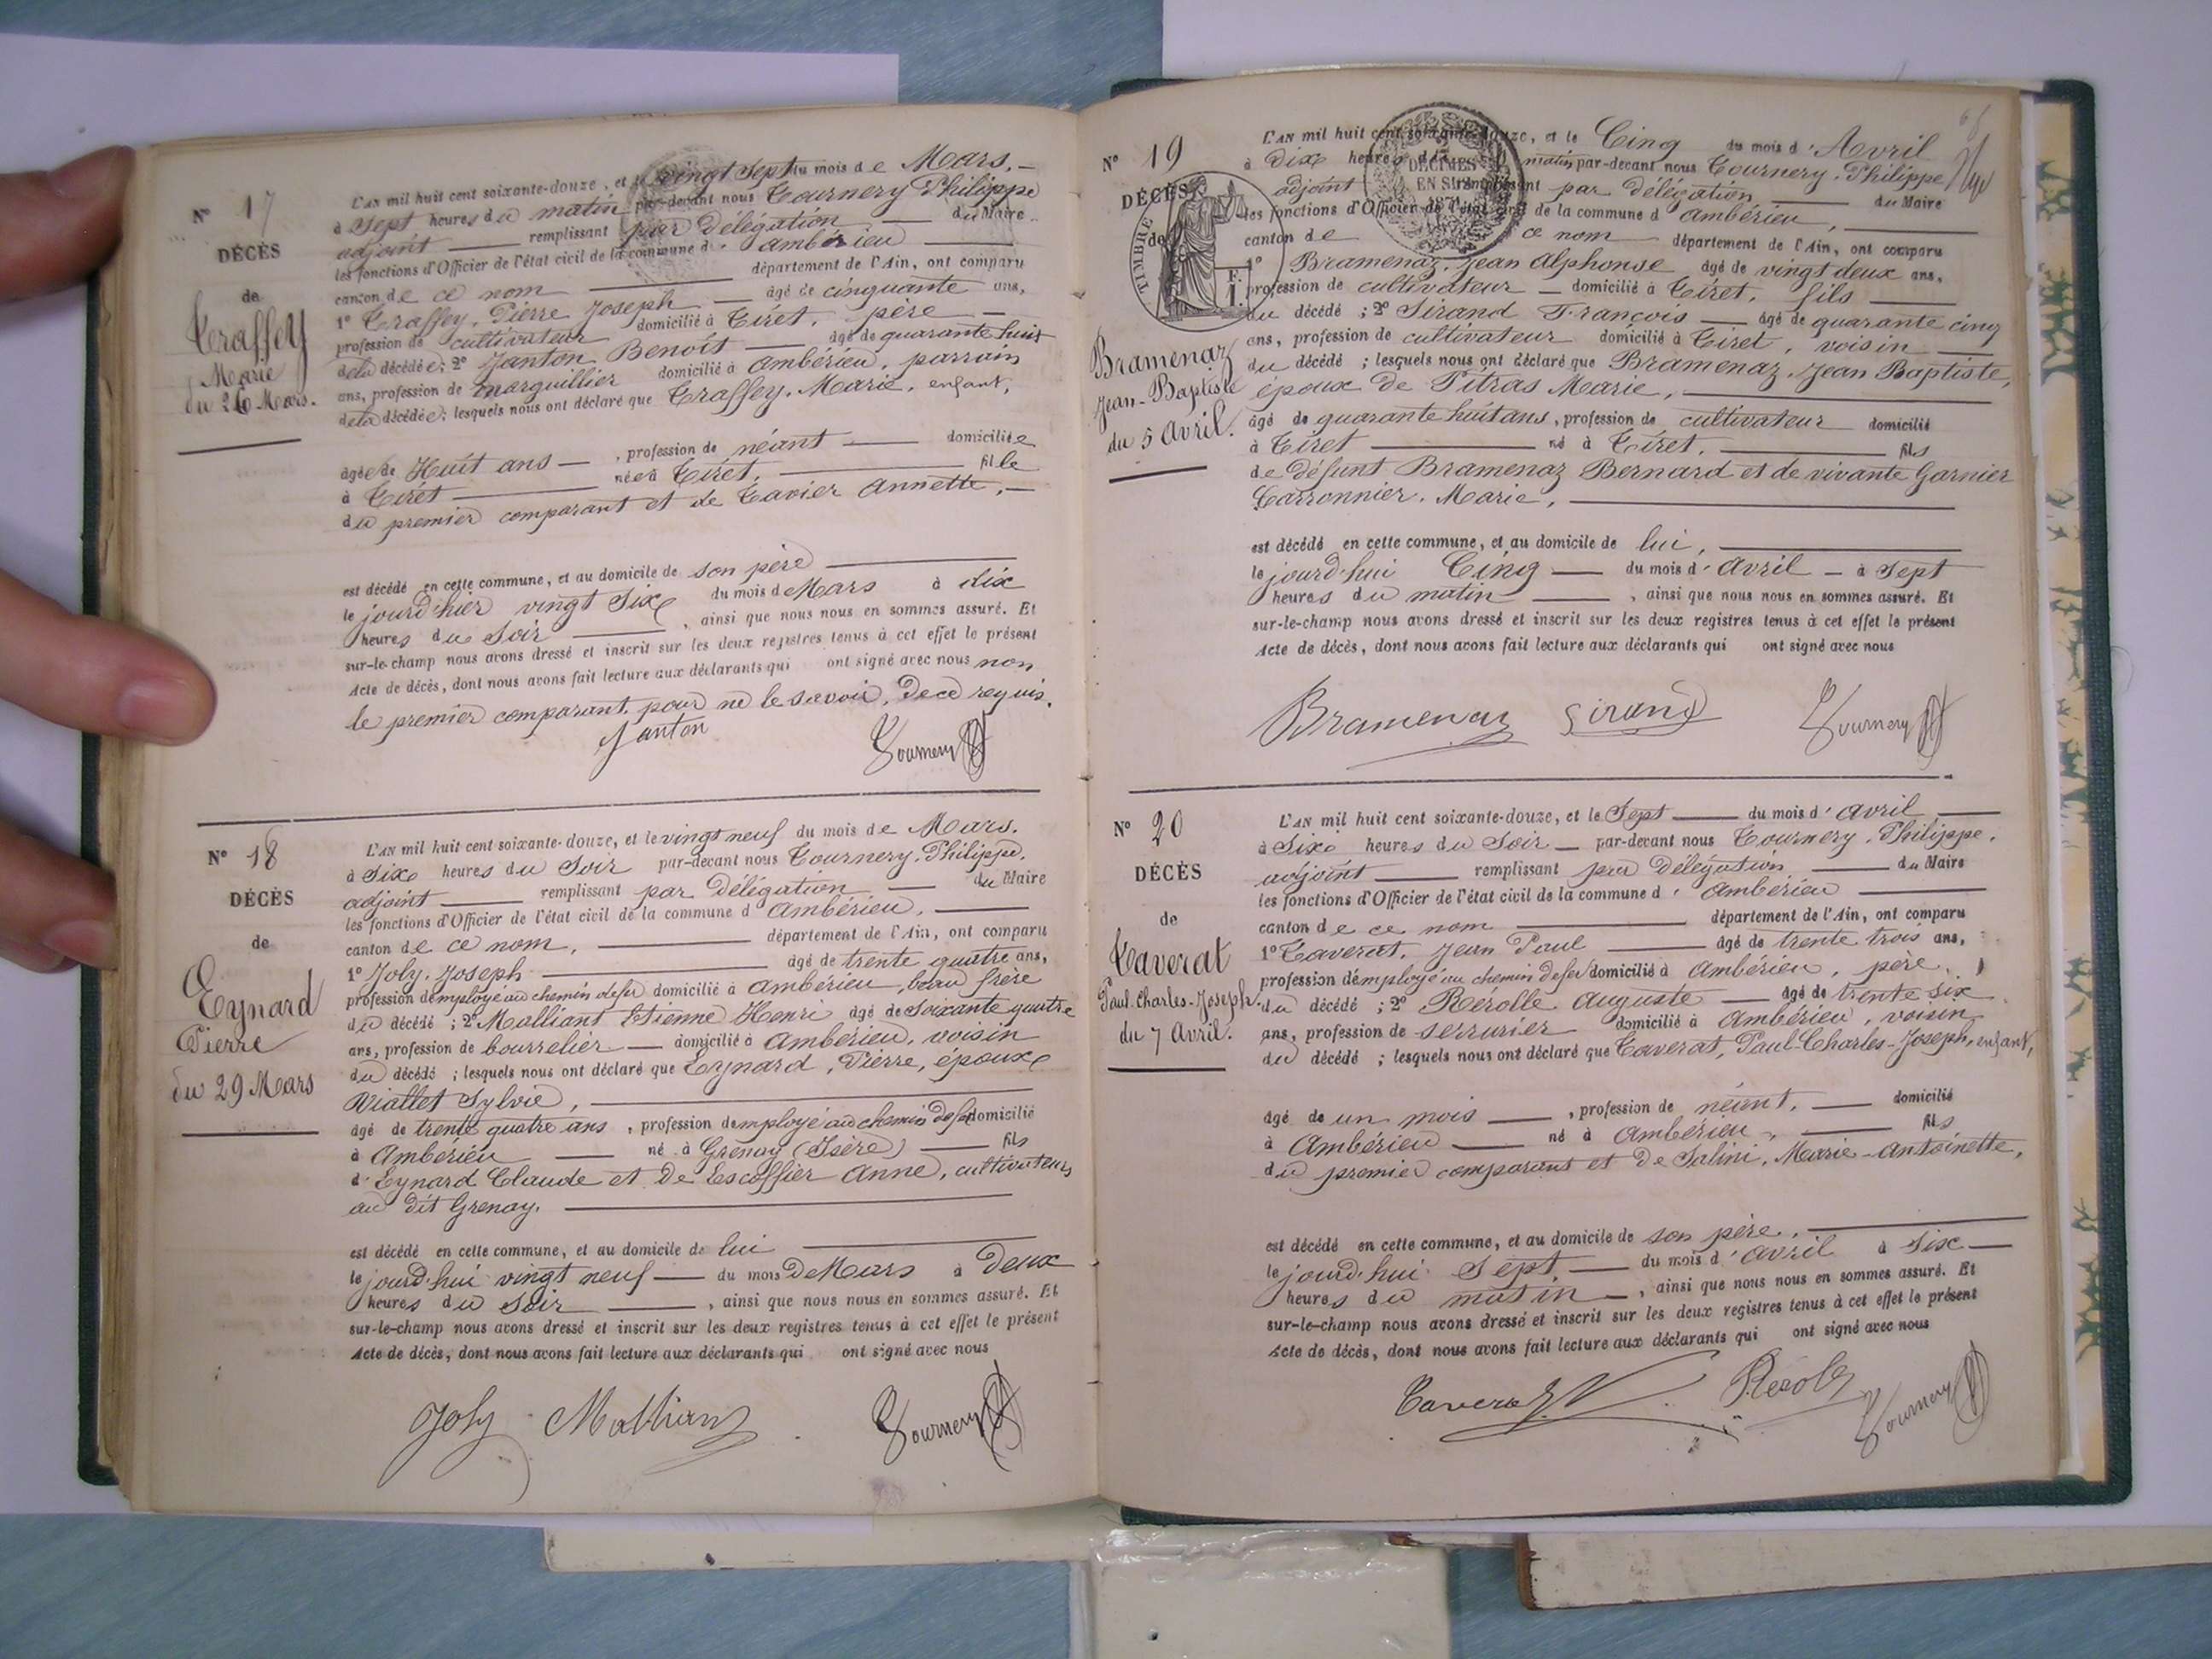 N° 17
DÉCÈS
de
Traffey
Marie
du 26 Mars.
L'AN mil huit cent soixante-douze, et le vingt Sept du mois de Mars.
à Sept heures du matin par-devant nous Tournery Philippe
adjoint remplissant par Délégation du Maire
les fonctions d'Officier de l'état civil de la commune d'Ambérieu
canton de ce nom département de l'Ain, ont comparu
1° Traffey, Pierre Joseph âgé de cinquante ans,
profession de cultivateur domicilié à Tiret, père
de la décédée; 2° Janton Benoît âgé de quarante huit
ans, profession de marguillier domicilié à Ambérieu, parrain
de la décédée; lesquels nous ont déclaré que Traffey, Marie, enfant,
âgée de Huit ans, profession de néant domiciliée
à Tiret née à Tiret, fille
du premier comparant et de Tavier Annette,
est décédé en cette commune, et au domicile de son père
le jourd'hier vingt Six du mois de Mars à dix
heures du Soir, ainsi que nous nous en sommes assuré. Et
sur-le-champ nous avons dressé et inscrit sur les deux registres tenus à cet effet le présent
Acte de décès, dont nous avons fait lecture aux déclarants qui ont signé avec nous non
le premier comparant pour ne le savoir, De ce requis.
Janton Tournery
N° 18
DÉCÈS
de
Eynard
Pierre
du 29 Mars
L'AN mil huit cent soixante-douze, et le vingt neuf du mois de Mars.
à Six heures du Soir par-devant nous Tournery, Philippe,
adjoint remplissant par Délégation du Maire
les fonctions d'Officier de l'état civil de la commune d'Ambérieu,
canton de ce nom, département de l'Ain, ont comparu
1° Joly, Joseph âgé de trente quatre ans,
profession d'employé au chemin de fer domicilié à Ambérieu, beau frère
du décédé; 2° Malliant Etienne Henri âgé de Soixante quatre
ans, profession de bourrelier domicilié à Ambérieu, voisin
du décédé; lesquels nous ont déclaré que Eynard, Pierre, époux
Viallet Sylvie,
âgé de trente quatre ans, profession d'employé au chemin de fer domicilié
à Ambérieu né à Grenay (Isère) fils
d'Eynard Claude et De Escoffier Anne, cultivateurs
au dit Grenay.
est décédé en cette commune, et au domicile de lui
le jourd'hui vingt neuf du mois De Mars à Deux
heures du Soir, ainsi que nous nous en sommes assuré. Et
sur-le-champ nous avons dressé et inscrit sur les deux registres tenus à cet effet le présent
Acte de décès, dont nous avons fait lecture aux déclarants qui ont signé avec nous
Joly Malliant Tournery
N° 19
DÉCÈS
de
TIMBRE
Bramenaz
Jean-Baptiste
du 5 Avril.
L'AN mil huit cent soixante-douze, et le Cinq du mois d'Avril
à Dix heures du matin par-devant nous Tournery, Philippe
adjoint remplissant par Délégation du Maire
2 DÉCIMES EN SUS
les fonctions d'Officier de l'état civil de la commune d'Ambérieu,
canton de ce nom département de l'Ain, ont comparu
1° Bramenaz, Jean Alphonse âgé de vingt deux ans,
profession de cultivateur domicilié à Tiret, fils
du décédé; 2° Sirand François âgé de quarante cinq
ans, profession de cultivateur domicilié à Tiret, voisin
du décédé; lesquels nous ont déclaré que Bramenaz, Jean Baptiste,
époux de Pitras Marie,
âgé de quarante huit ans, profession de cultivateur domicilié
à Tiret né à Tiret, fils
de défunt Bramenaz Bernard et de vivante Garnier
Carronnier, Marie,
est décédé en cette commune, et au domicile de lui,
le jourd'hui Cinq du mois d'Avril à Sept
heures du matin, ainsi que nous nous en sommes assuré. Et
sur-le-champ nous avons dressé et inscrit sur les deux registres tenus à cet effet le présent
Acte de décès, dont nous avons fait lecture aux déclarants qui ont signé avec nous
Bramenaz Sirand Tournery
N° 20
DÉCÈS
de
Taverat
Paul-Charles-Joseph.
du 7 Avril.
L'AN mil huit cent soixante-douze, et le Sept du mois d'Avril
à Six heures du Soir par-devant nous Tournery, Philippe,
adjoint remplissant par Délégation du Maire
les fonctions d'Officier de l'état civil de la commune d'Ambérieu
canton de ce nom département de l'Ain, ont comparu
1° Taverat, Jean Paul âgé de trente trois ans,
profession d'employé au chemin de fer domicilié à Ambérieu, père
du décédé; 2° Rérolle Auguste âgé de trente six
ans, profession de serrurier domicilié à Ambérieu, voisin
du décédé; lesquels nous ont déclaré que Taverat, Paul-Charles-Joseph, enfant,
âgé de un mois, profession de néant, domicilié
à Ambérieu né à Ambérieu, fils
du premier comparant et De Salini, Marie-Antoinette,
est décédé en cette commune, et au domicile de son père,
le jourd'hui Sept, du mois d'Avril à Six
heures du matin, ainsi que nous nous en sommes assuré. Et
sur-le-champ nous avons dressé et inscrit sur les deux registres tenus à cet effet le présent
Acte de décès, dont nous avons fait lecture aux déclarants qui ont signé avec nous
Taverat Rérolle Tournery